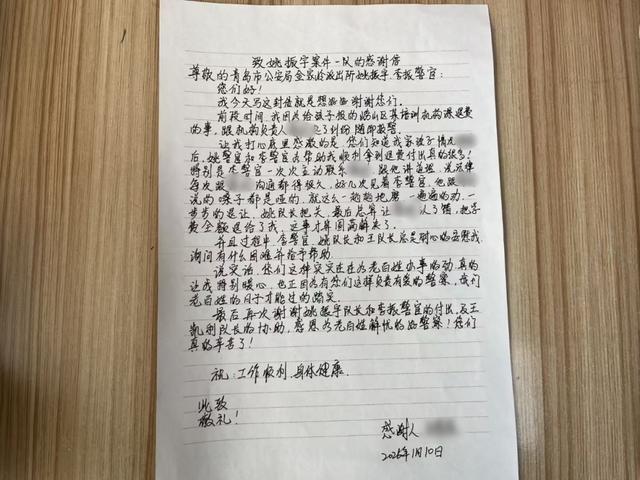 致姚振宇案件一队的感谢信
尊敬的青岛市公安局金家岭派出所姚振宇、李振警官:
您们好!
我今天写这封信就是想 谢谢您们。
前段时间,我因为给孩子报的崂山区某培训机构课退费
的事,跟机构负责人 起了纠纷随即报警。
让我打心底里感激的是,您们知道我家孩子情况
后,姚警官和李警官为帮助我顺利拿到退费付出真的很多!
特别是李警官一次次主动联系 跟他讲道理、说法律
每次跟 沟通都得很久,好几次见着李警官,他跟 
说的嗓子都是哑的,就这么一趟趟地磨、一遍遍的劝、一
步步的是让,姚队长把关,最后总算让 认了错,把学
费全额退给了我,这事才算圆满解决了。
并且过程中,李警官、姚队长和王队长总是耐心的安慰我,
询问有什么困难并给予帮助。
说实话,您们这样实实在在为老百姓办事的劲,真的
让我特别暖心,也正因为有您们这样负责有爱的警察,我们
老百姓的日子才能过的踏实。
最后再次谢谢姚振宇队长和李振警官的付出,及王
凯利队长的协助,感恩为老百姓解忧的好警察!您们
真的辛苦了!
祝:工作顺利、身体健康.
此致
敬礼!
感谢人
2026年1月10日